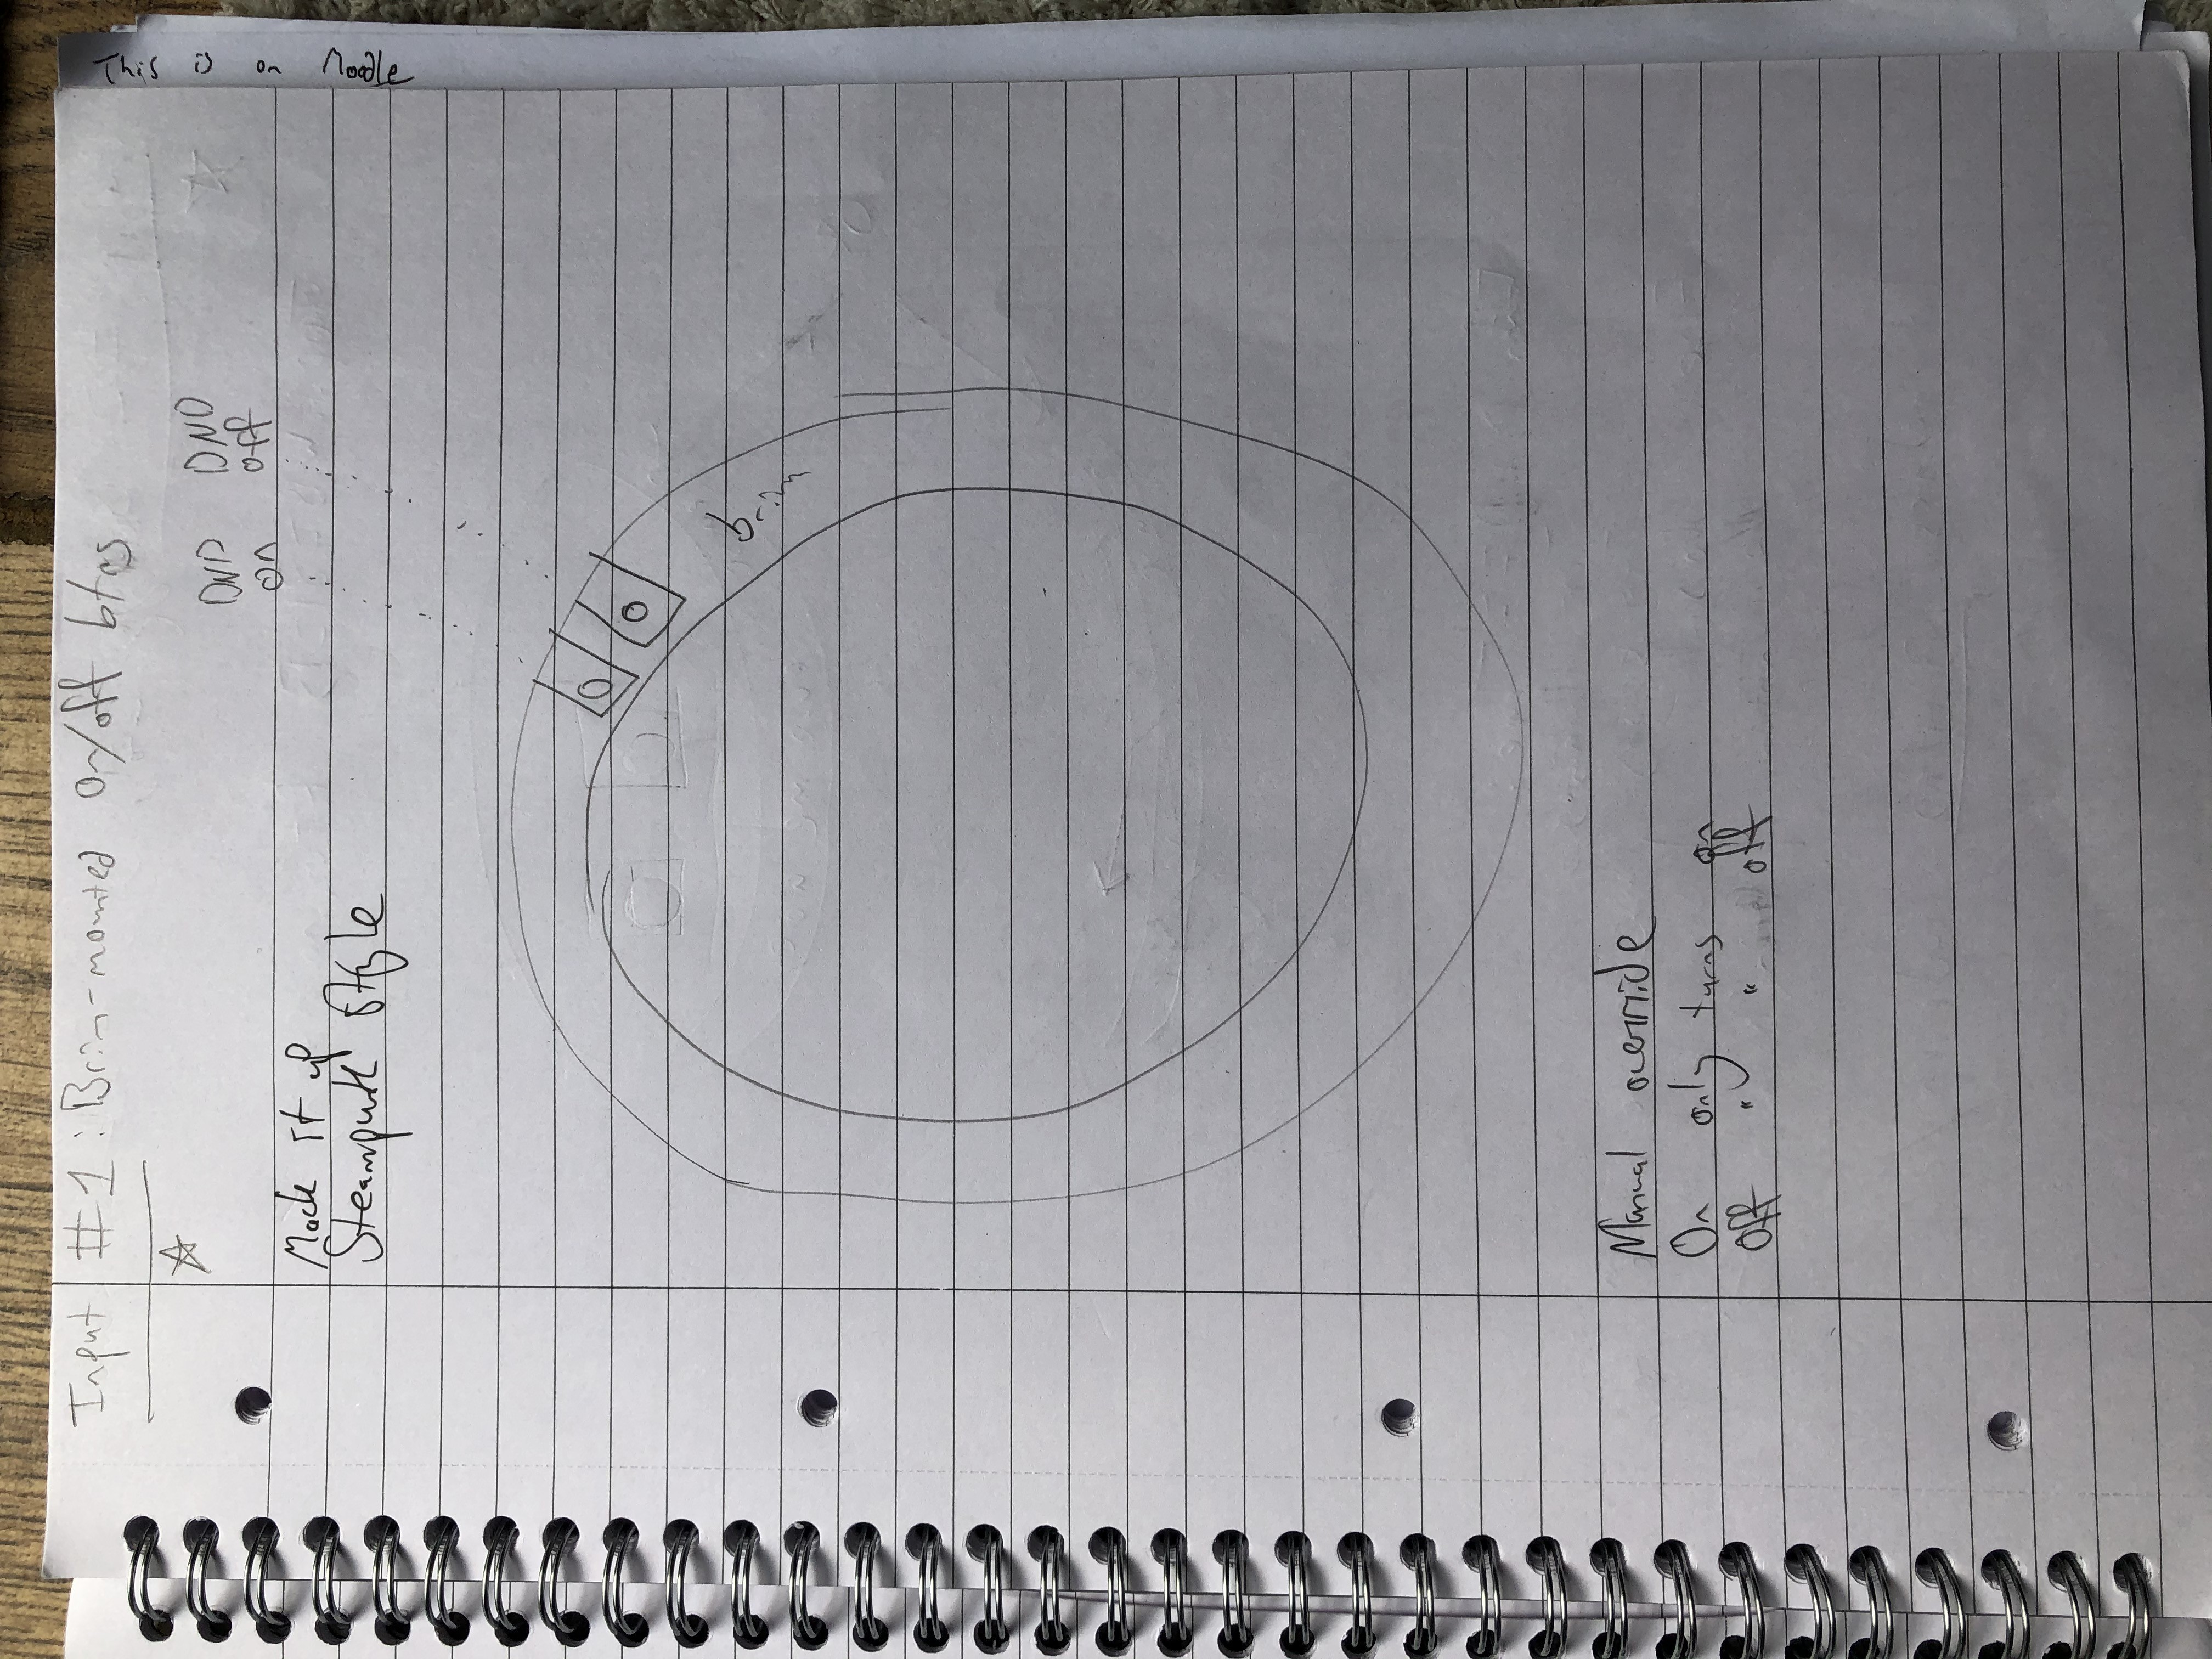 Input #1: Brim-mounted On/off btns
DND on
DND off
Mock it up
Steampunk Style
brim
Manual override
On only turns on
Off " " off
This is on Moodle